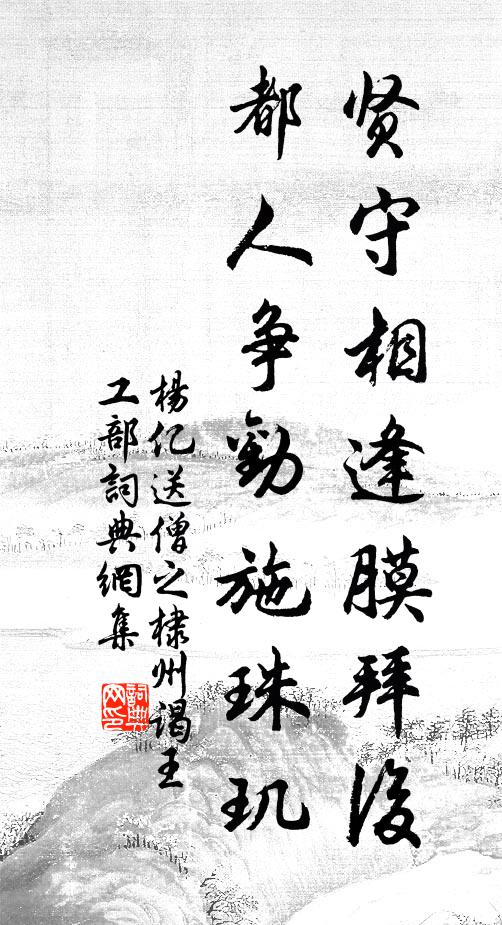 贤守相逢膜拜後
都人争劝施珠玑
楊亿送僧之棣州谒王
工部詞典網集
詞典网印